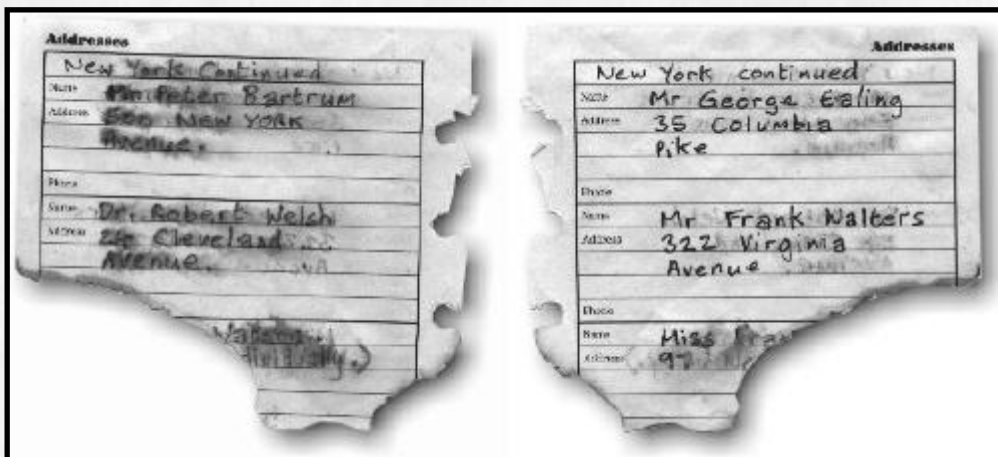 Addresses
New York Continued
Name Mr Peter Bartrum
Address 500 NEW YORK
Avenue.
Phone
Name Dr. Robert Welsh
Address 24 Cleveland
Avenue.
Addresses
New York continued
Name Mr George Ealing
Address 35 Columbia
Pike
Phone
Name Mr Frank Walters
Address 322 Virginia
Avenue
Phone
Name Miss
Address 97